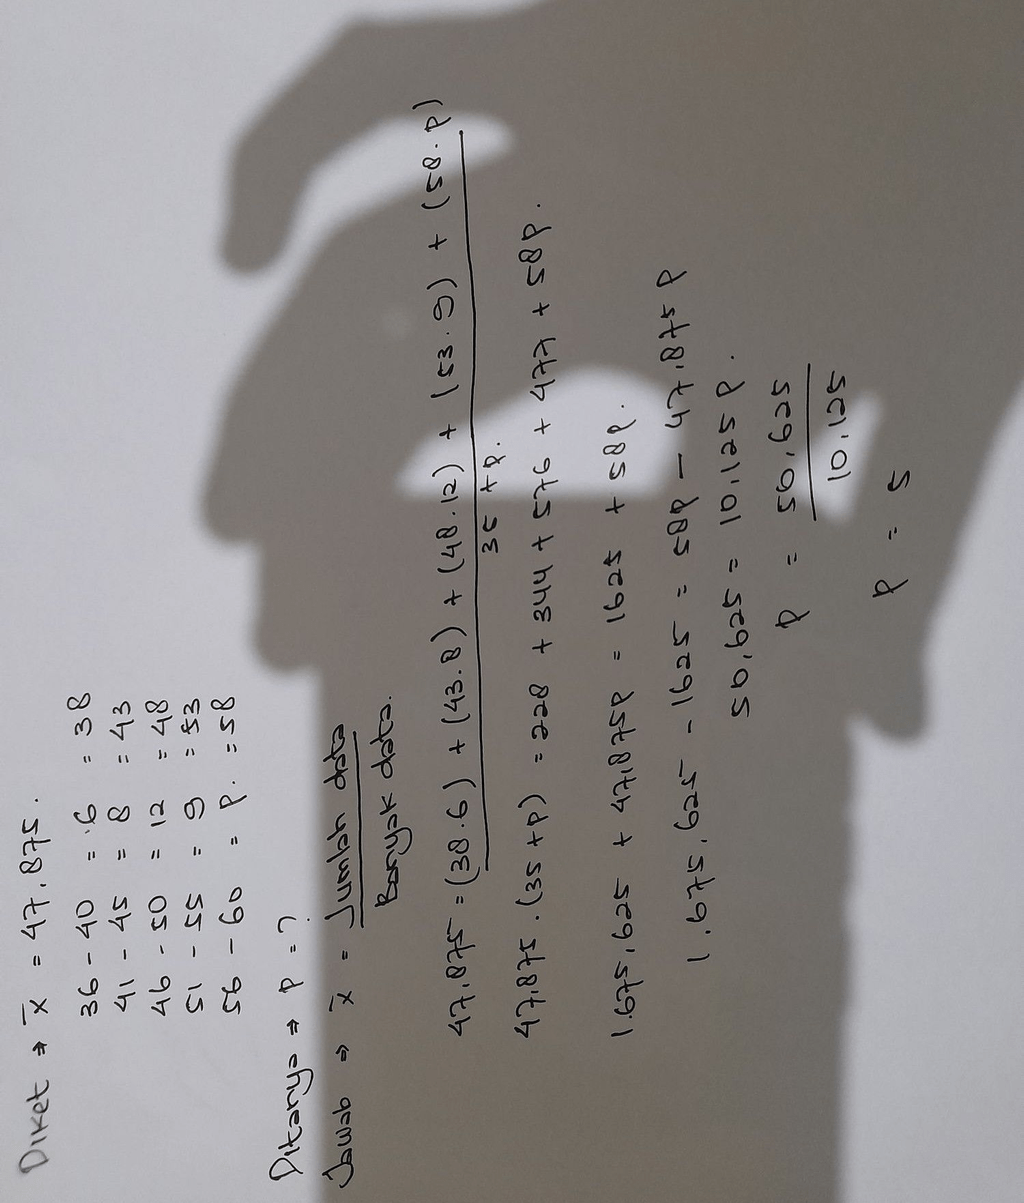 Diket → x̄ = 47,875.
36 – 40 = 6 = 38
41 – 45 = 8 = 43
46 - 50 = 12 = 48
51 - 55 = 9 = 53
56 – 60 = P. = 58
Ditanya → P = ?
Jawab → x̄ = Jumlah data
Banyak data.
47,875 = (38.6) + (43.8) + (48.12) + (53.9) + (58.P)
35 + P.
47,875.(35+P) = 228 + 344 + 576 + 477 + 58P.
1.675,625 + 47,875P = 1625 + 58P.
1.675,625 - 1625 = 58P – 47,875P
50,625 = 10,125P.
P = 50,625
10,125
P = 5